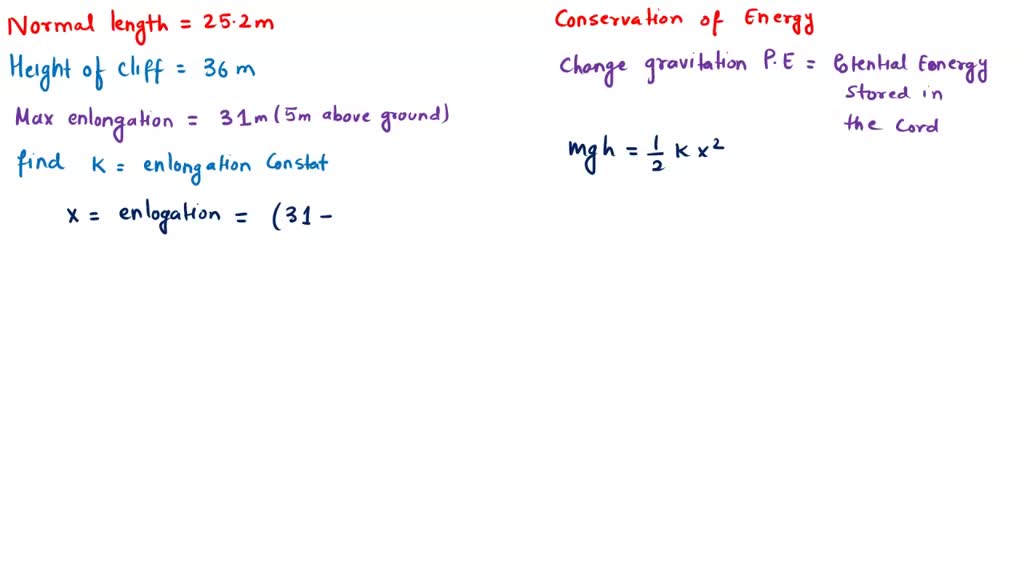 Normal length = 25.2m
Height of cliff = 36 m
Max enlongation = 31m (5m above ground)
find K = enlongation Constat
x = enlogation = (31 -
Conservation of Energy
Change gravitation P.E = Potential Eonergy
stored in
the Cord
mgh = 1/2 K x²